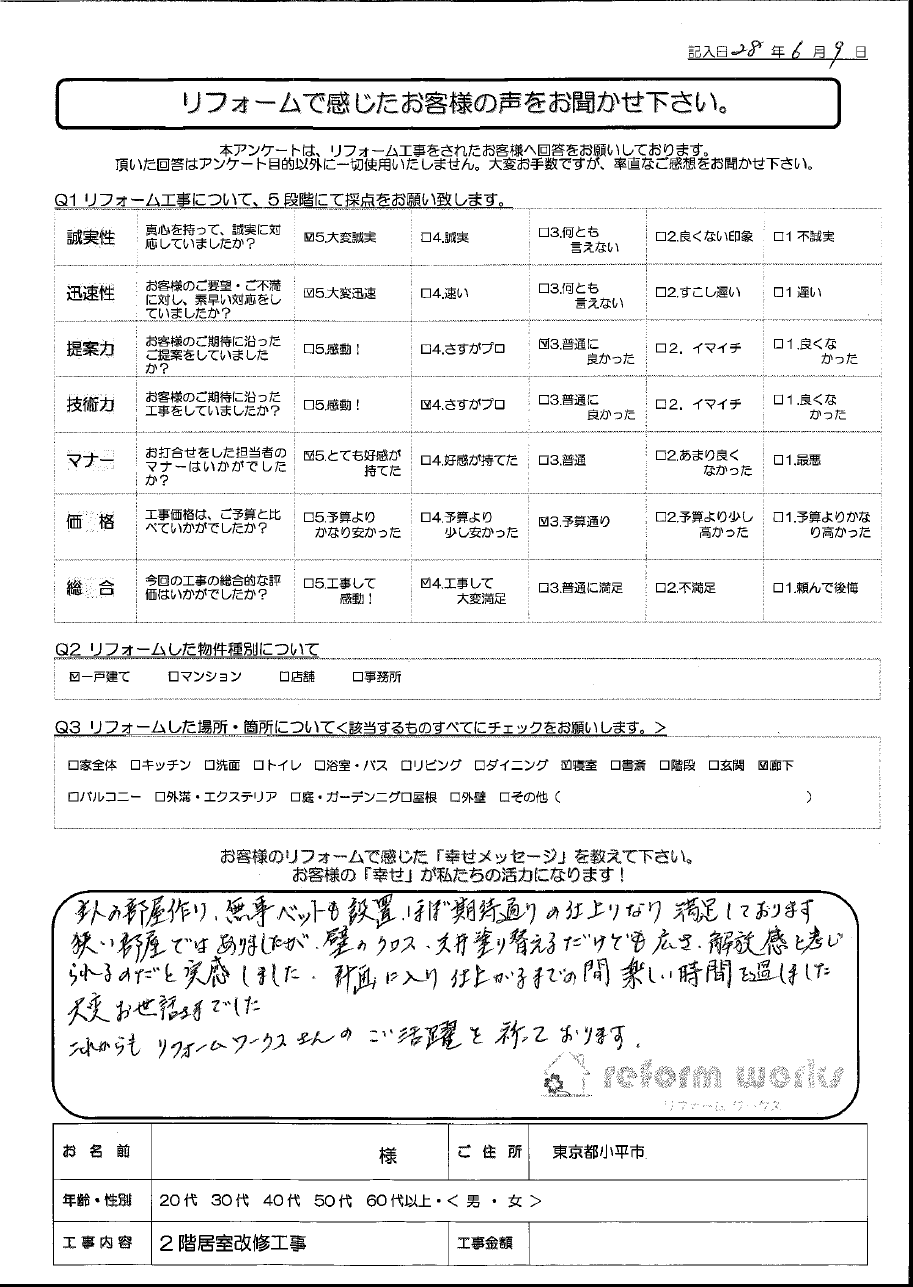 記入日28年6月9日
リフォームで感じたお客様の声をお聞かせ下さい。
本アンケートは、リフォーム工事をされたお客様へ回答をお願いしております。
頂いた回答はアンケート目的以外に一切使用いたしません。大変お手数ですが、率直なご感想をお聞かせ下さい。
Q1 リフォーム工事について、5段階にて採点をお願い致します。
誠実性 真心を持って、誠実に対応していましたか? ☑5.大変誠実 □4.誠実 □3.何とも言えない □2.良くない印象 □1 不誠実
迅速性 お客様のご要望・ご不満に対し、素早い対応をしていましたか? ☑5.大変迅速 □4.速い □3.何とも言えない □2.すこし遅い □1 遅い
提案力 お客様のご期待に沿ったご提案をしていましたか? □5.感動! □4.さすがプロ ☑3.普通に良かった □2. イマイチ □1.良くなかった
技術力 お客様のご期待に沿った工事をしていましたか? □5.感動! ☑4.さすがプロ □3.普通に良かった □2. イマイチ □1.良くなかった
マナー お打合せをした担当者のマナーはいかがでしたか? ☑5.とても好感が持てた □4.好感が持てた □3.普通 □2.あまり良くなかった □1.最悪
価格 工事価格は、ご予算と比べていかがでしたか? □5.予算よりかなり安かった □4.予算より少し安かった ☑3.予算通り □2.予算より少し高かった □1.予算よりかなり高かった
総合 今回の工事の総合的な評価はいかがでしたか? □5.工事して感動! ☑4.工事して大変満足 □3.普通に満足 □2.不満足 □1.頼んで後悔
Q2 リフォームした物件種別について
☑一戸建て □マンション □店舗 □事務所
Q3 リフォームした場所・箇所について<該当するものすべてにチェックをお願いします。>
□家全体 □キッチン □洗面 □トイレ □浴室・バス □リビング □ダイニング ☑寝室 □書斎 □階段 □玄関 ☑廊下
□バルコニー □外溝・エクステリア □庭・ガーデンニグ□屋根 □外壁 □その他( )
お客様のリフォームで感じた「幸せメッセージ」を教えて下さい。
お客様の「幸せ」が私たちの活力になります!
主人の部屋作り、無事ベットも設置、ほぼ期待通りの仕上りなり 満足しております
狭い部屋ではありましたが、壁のクロス、天井塗り替えるだけでも広さ、解放感と考じ
られるのだと実感しました。計画に入り仕上がるまでの間 楽しい時間を過しました
大変お世話さまでした
これからも リフォームワークスさんの ご活躍を祈っております。
reform works
リフォーム ワークス
お名前 様 ご住所 東京都小平市
年齢・性別 20代 30代 40代 50代 60代以上・< 男 ・ 女 >
工事内容 2階居室改修工事 工事金額